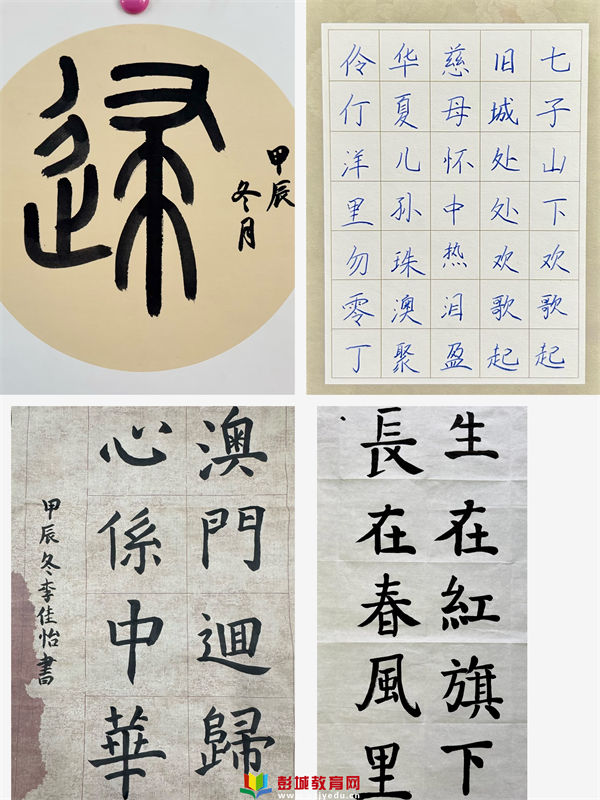 甲辰
冬月
七子山下欢歌起
旧城处处欢歌起
慈母怀中热泪盈
华夏儿孙珠澳聚
伶仃洋里勿零丁
澳門迴歸
心係中華
甲辰冬李佳怡書
生在紅旗下
長在春風里
彭城教育网